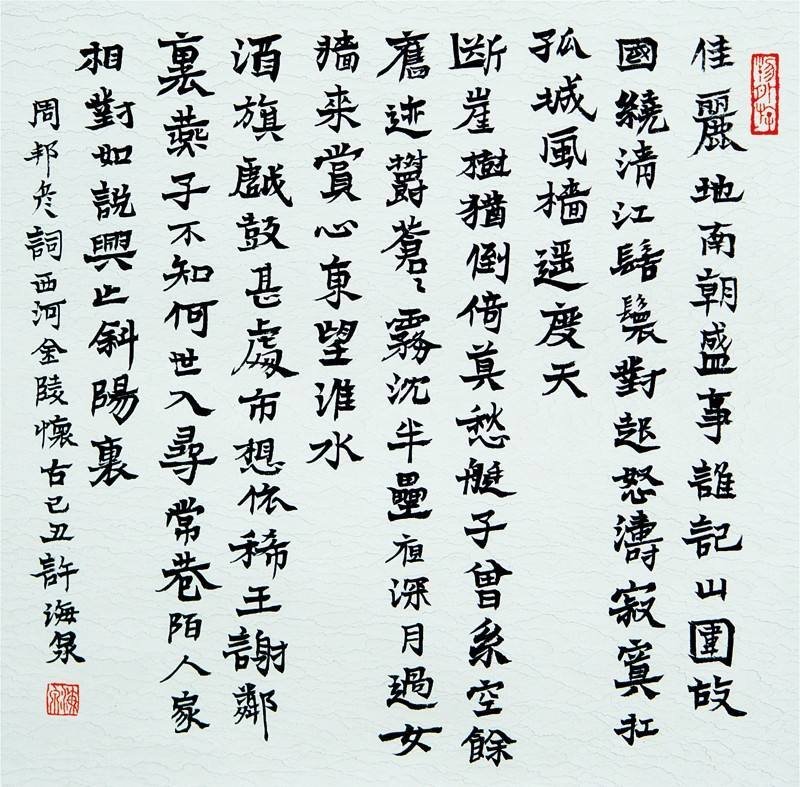 佳麗地南朝盛事誰記山圍故
國繞清江髻鬟對起怒濤寂寞打
孤城風檣遥度天
断崖樹猶倒倚莫愁艇子曾系空餘
舊迹鬱蒼〻霧沉半壘夜深月過女
牆来賞心東望淮水
酒旗戲鼓甚處市想依稀王謝鄰
裏燕子不知何世入尋常巷陌人家
相對如説興亡斜陽裏
周邦彦詞西河金陵懷古己丑許海泉